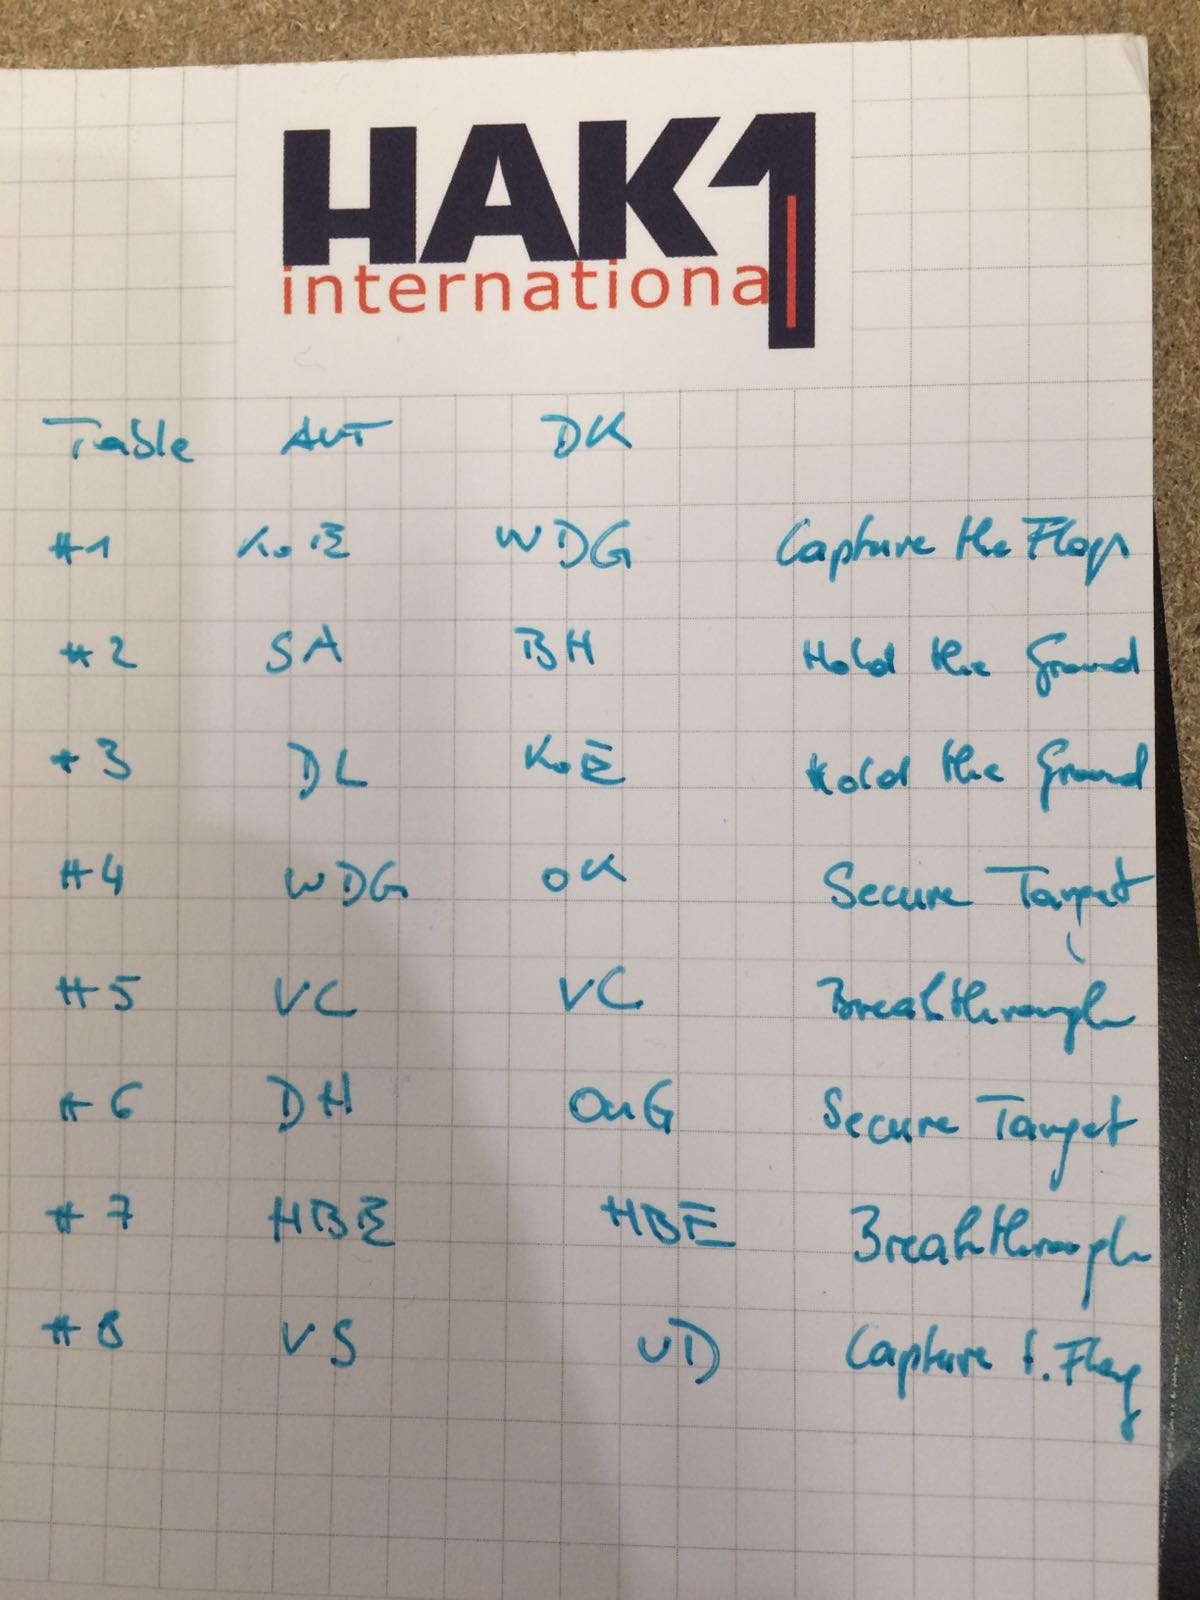 HAK1
international
Table AUT DK
#1 KoE WDG Capture the Flags
#2 SA BH Hold the Ground
#3 DL KoE Hold the Ground
#4 WDG OK Secure Target
#5 VC VC Breakthrough
#6 DH OuG Secure Target
#7 HBE HBE Breakthrough
#8 VS UD Capture t. Flag